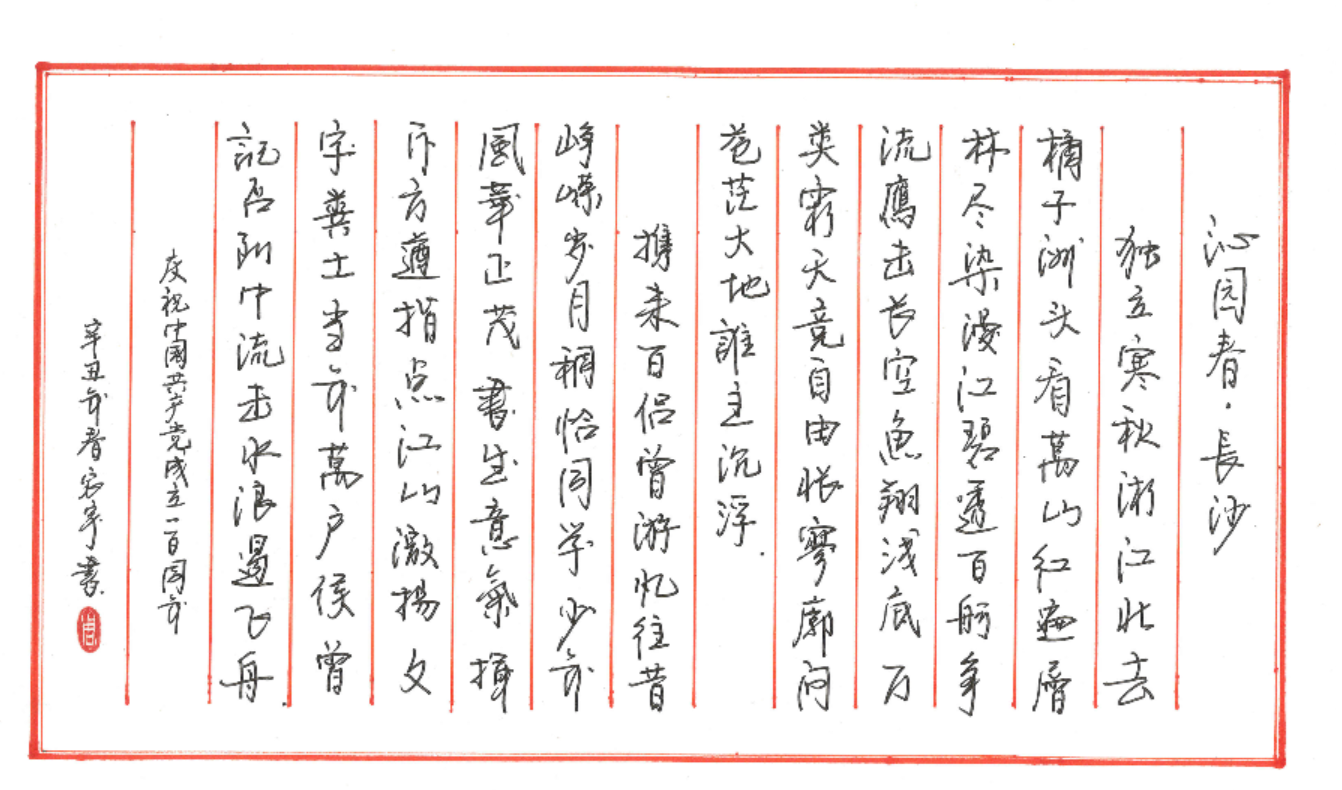 沁园春·長沙
独立寒秋湘江北去
橘子洲头看萬山红遍層
林尽染漫江碧透百舸争
流鷹击长空魚翔浅底万
类霜天竞自由怅寥廓问
苍茫大地誰主沉浮.
携来百侣曾游忆往昔
峥嵘岁月稠恰同学少年
風華正茂書生意氣揮
斥方遒指点江山激揚文
字糞土当年萬户侯曾
記否到中流击水浪遏飞舟.
庆祝中国共产党成立一百周年
辛丑年春書